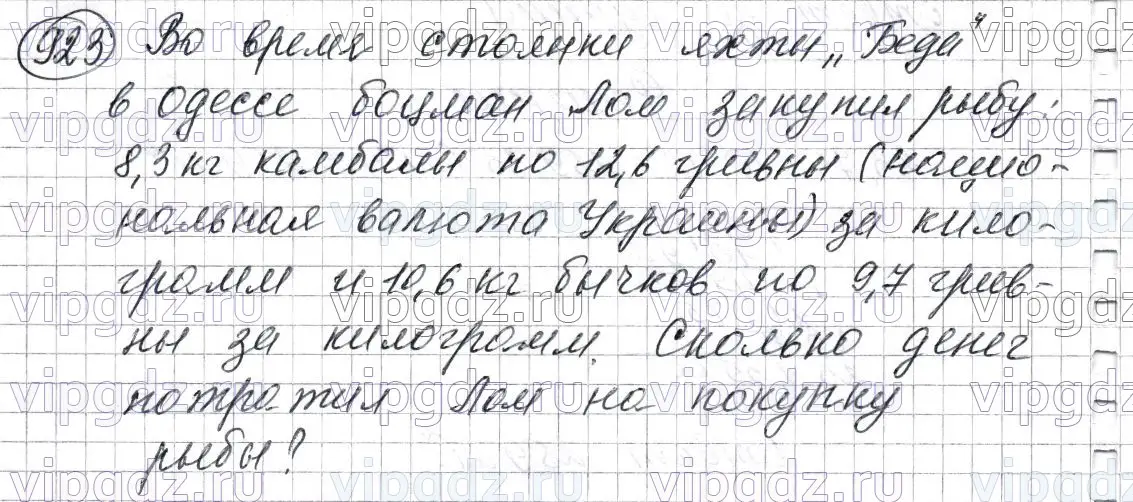 923 Во время стоянки яхты „Беда"
в Одессе боцман Лом закупил рыбу:
8,3 кг камбалы по 12,6 гривны (нацио-
нальная валюта Украины) за кило-
грамм и 10,6 кг бычков по 9,7 грив-
ны за килограмм. Сколько денег
потратил Лом на покупку
рыбы?